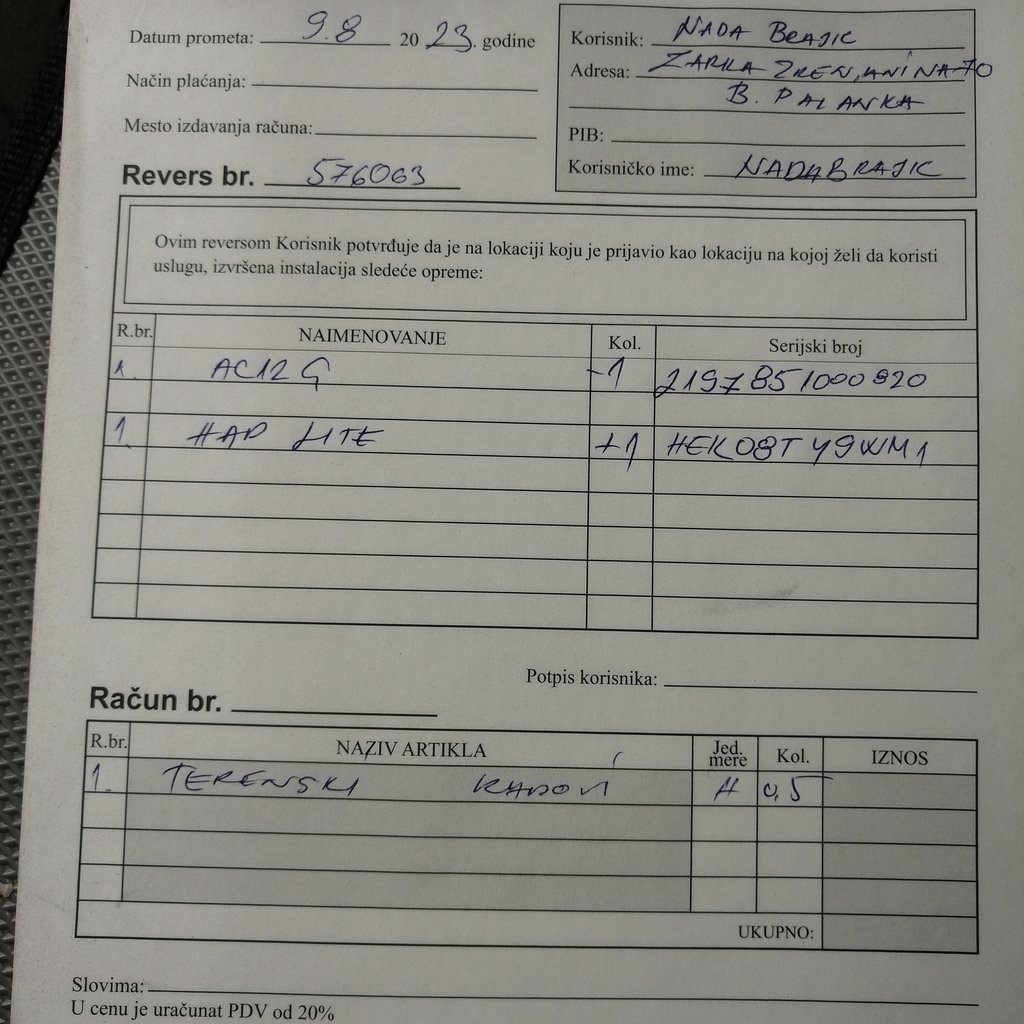 Datum prometa: 9.8 2023. godine
Način plaćanja:
Mesto izdavanja računa:
Revers br. 576063
Korisnik: NADA BRAJIC
Adresa: ZARKA ZRENJANINA 70
B. PALANKA
PIB:
Korisničko ime: NADABRAJIC
Ovim reversom Korisnik potvrđuje da je na lokaciji koju je prijavio kao lokaciju na kojoj želi da koristi
uslugu, izvršena instalacija sledeće opreme:
R.br. NAIMENOVANJE Kol. Serijski broj
1. AC12 G -1 2197851000920
1. HAP LITE +1 HEK08TY9WM1
Potpis korisnika:
Račun br.
R.br. NAZIV ARTIKLA Jed. mere Kol. IZNOS
1. TERENSKI RADOVI H 0,5
UKUPNO:
Slovima:
U cenu je uračunat PDV od 20%